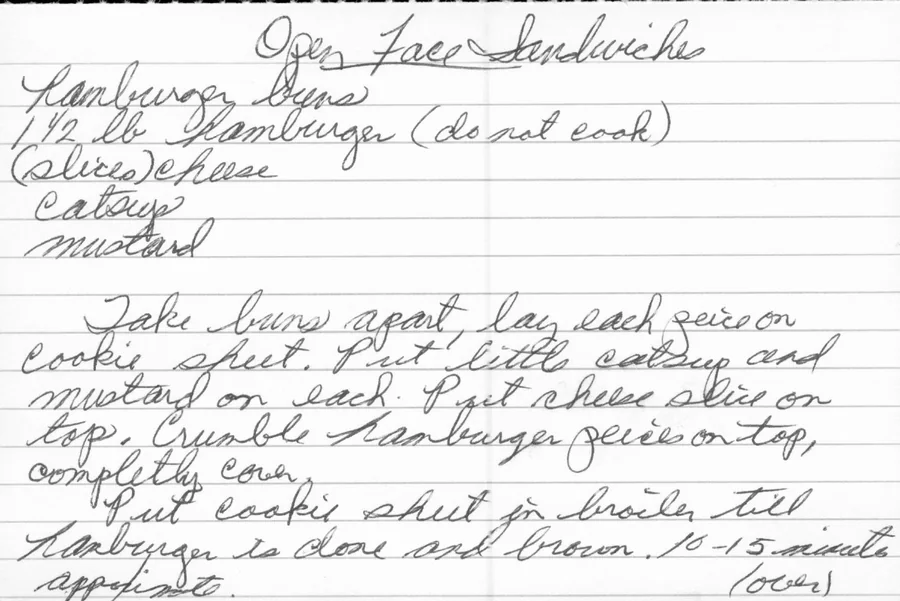 Open Face Sandwiches
hamburger buns
1 1/2 lb hamburger (do not cook)
(slices) cheese
catsup
mustard
Take buns apart, lay each peice on
cookie sheet. Put little catsup and
mustard on each. Put cheese slice on
top. Crumble hamburger peices on top,
completly cover.
Put cookie sheet in broiler till
hamburger is done and brown. 10-15 minute
appximate.
(over)